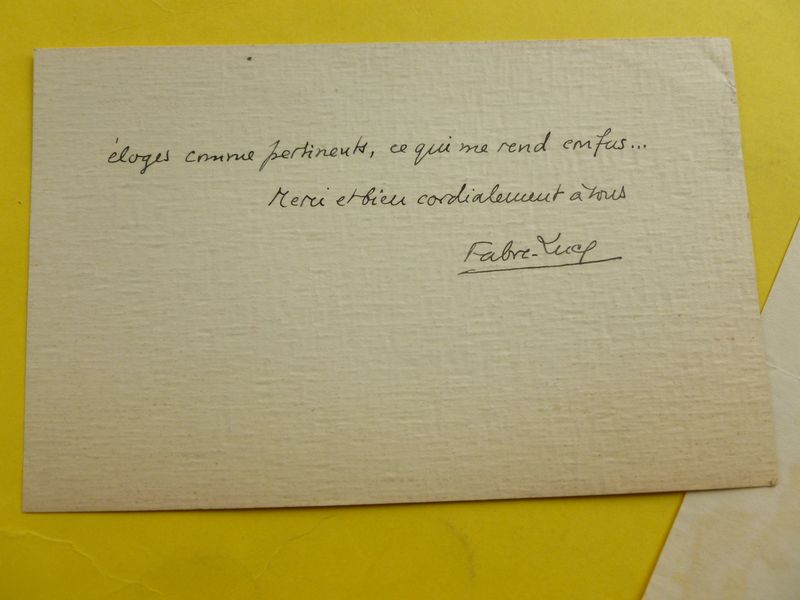 éloges comme pertinents, ce qui me rend confus...
Merci et bien cordialement à tous
Fabre-Luce